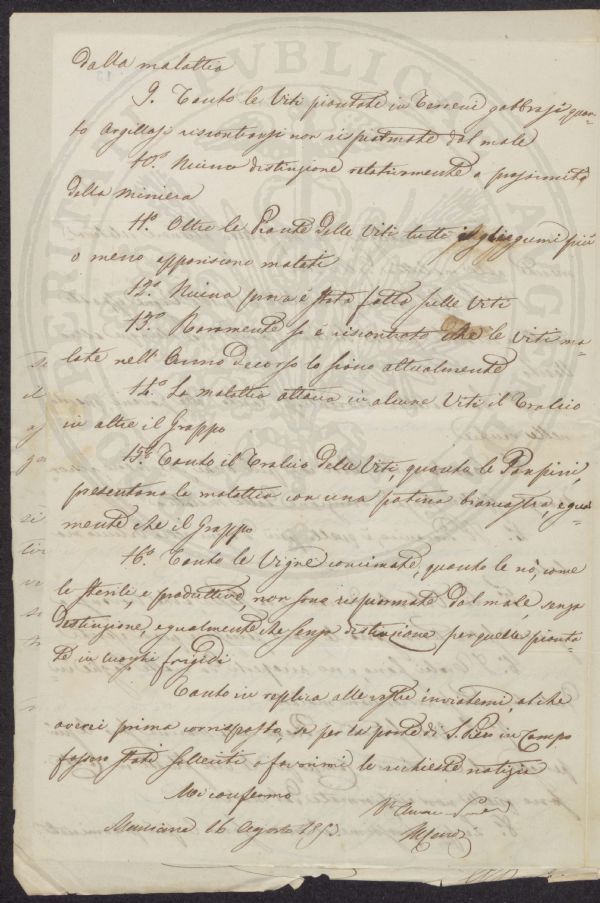 dalla malattia
9. Tanto le Viti piantate in Terreni gabbrosi, quan-
to Argillosi riscontransi non risparmiate dal male
10.° Niuna distinzione relativamente a prossimità
della miniera
11.° Oltre le Piante delle Viti tutti gli agrumi più
o meno appariscono malati
12.° Niuna prova è stata fatta sulle Viti
13.° Raramente si è riscontrato che le Viti ma-
late nell'Anno decorso lo siano attualmente
14.° La malattia attacca in alcune Viti il Tralcio
in altre il Grappo
15.° Tanto il Tralcio delle Viti, quanto le Pampini,
presentano la malattia con una patina biancastra, egual
mente che il Grappo
16.° Tanto le Vigne concimate, quanto le nò, come
le sterili, e produttive, non sono risparmiate dal male, senza
distinzione, egualmente che senza distinzione per quelle pianta-
te in luoghi frigidi
Tanto in replica alle inviatemi, al che
averei prima corrisposto, se per la parte di S. Piero in Campo
fossero stati solleciti a favorirmi le richieste notizie
Mi confermo
Marciana 16 Agosto